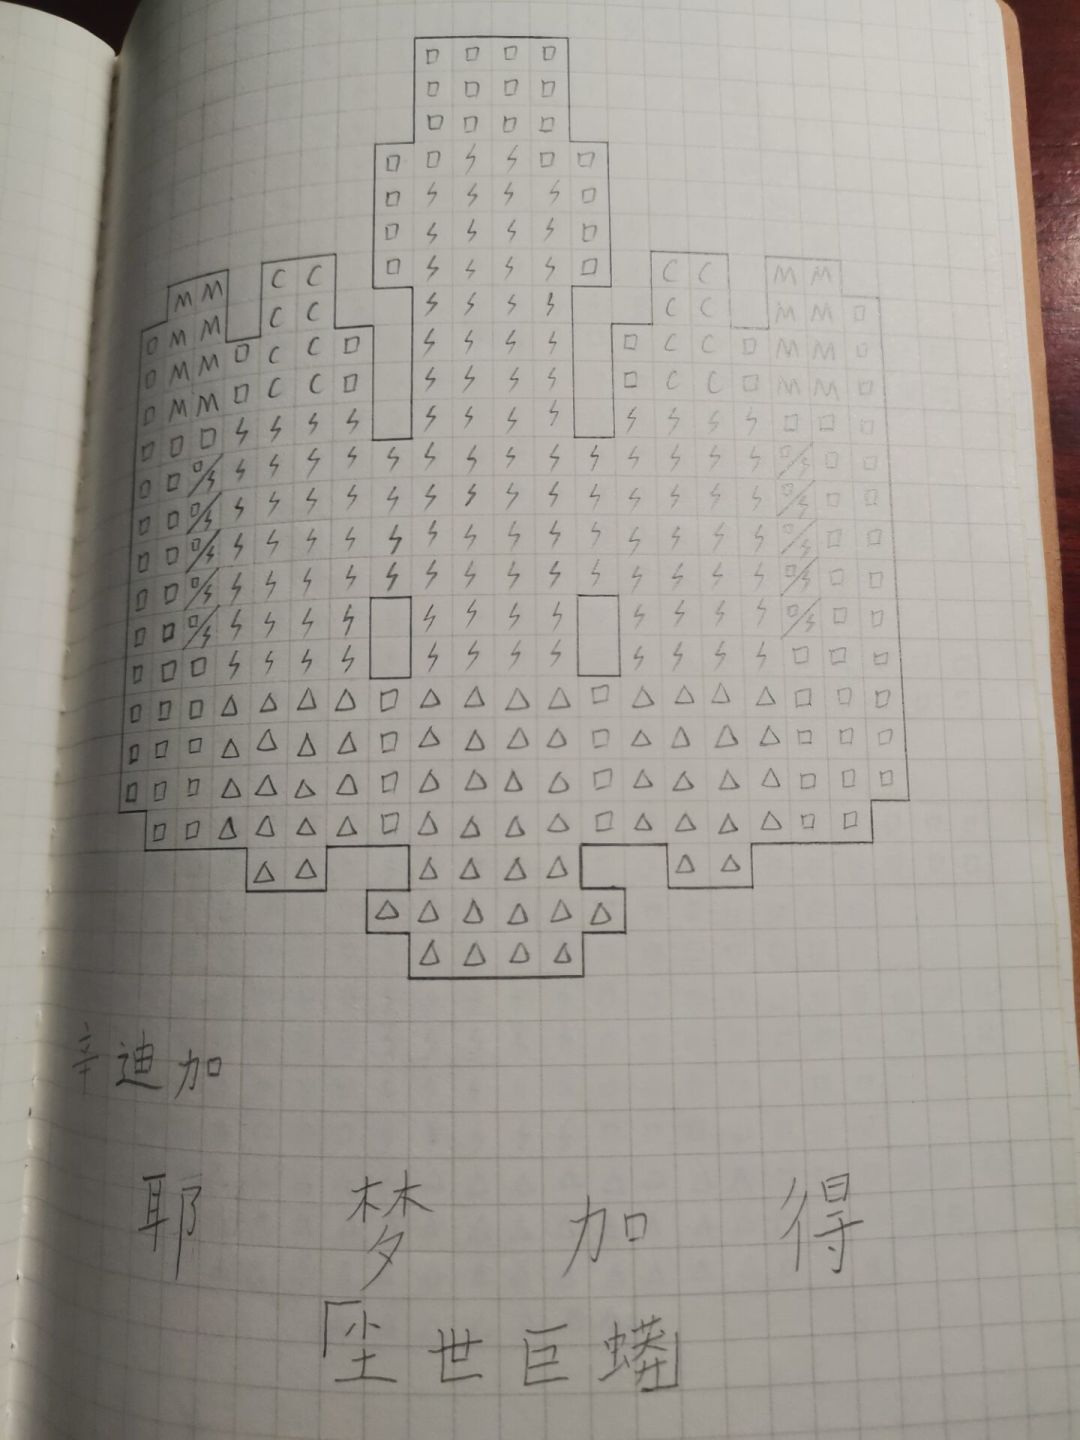 辛迪加
耶梦加得
「尘世巨蟒」